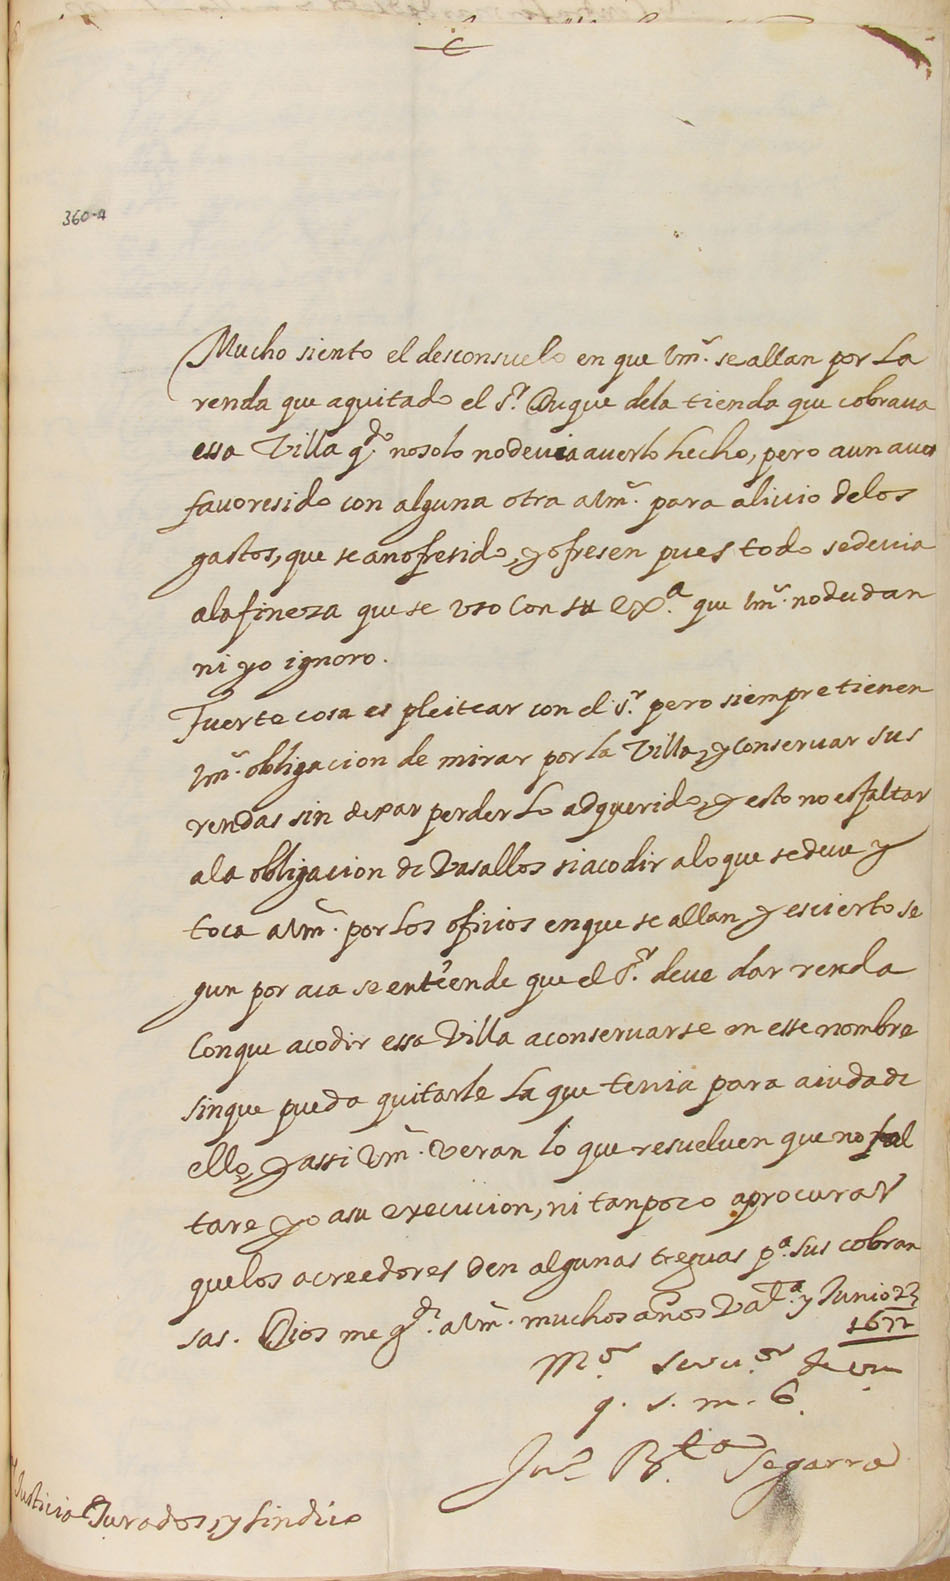 360-a
Mucho siento el desconsuelo en que Vmˢ. se allan por La
renda que a quitado el Sʳ. Duque dela tienda que cobraua
essa Villa qᵈᵒ. nosolo nodeuia auerlo hecho, pero aun auer
fauoresido con alguna otra a Vmˢ. para aliuio delos
gastos, que se an ofresido, y ofresen pues todo sedeuia
alafineza que se uso Con su Exᵃ. que Vmˢ. nodudan
ni yo ignoro.
Fuerte cosa es pleitear con el Sʳ. pero siempre tienen
Vmˢ. obligacion de mirar por la Villa, y Conseruar sus
rendas sin dexar perder Lo adquerido, y esto no es faltar
ala obligacion de Vasallos si acodir alo que se deue y
toca a Vmˢ. por Los ofisios enque se allan y es cierto se
gun por aca se entiende que el Sʳ. deue dar renda
Conque acodir essa Villa a conseruarse en esse nombre
sinque pueda quitarle La que tenia para aiuda de
ello, y assi Vmˢ. veran lo que resueluen que no fal
tare yo asu execucion, ni tanpoco a procurar
quelos acreedores den algunas treguas pᵃ. sus cobran
sas. Dios me gᵈᵉ. a Vmˢ. muchos años Valᵃ. y Junio 23
1677
Mᵒʳ. Seruᵒʳ de Vm
q. s. m. b.
Juᵒ Bᵗᵃ Segarra
Justicia Jurados, y Sindico